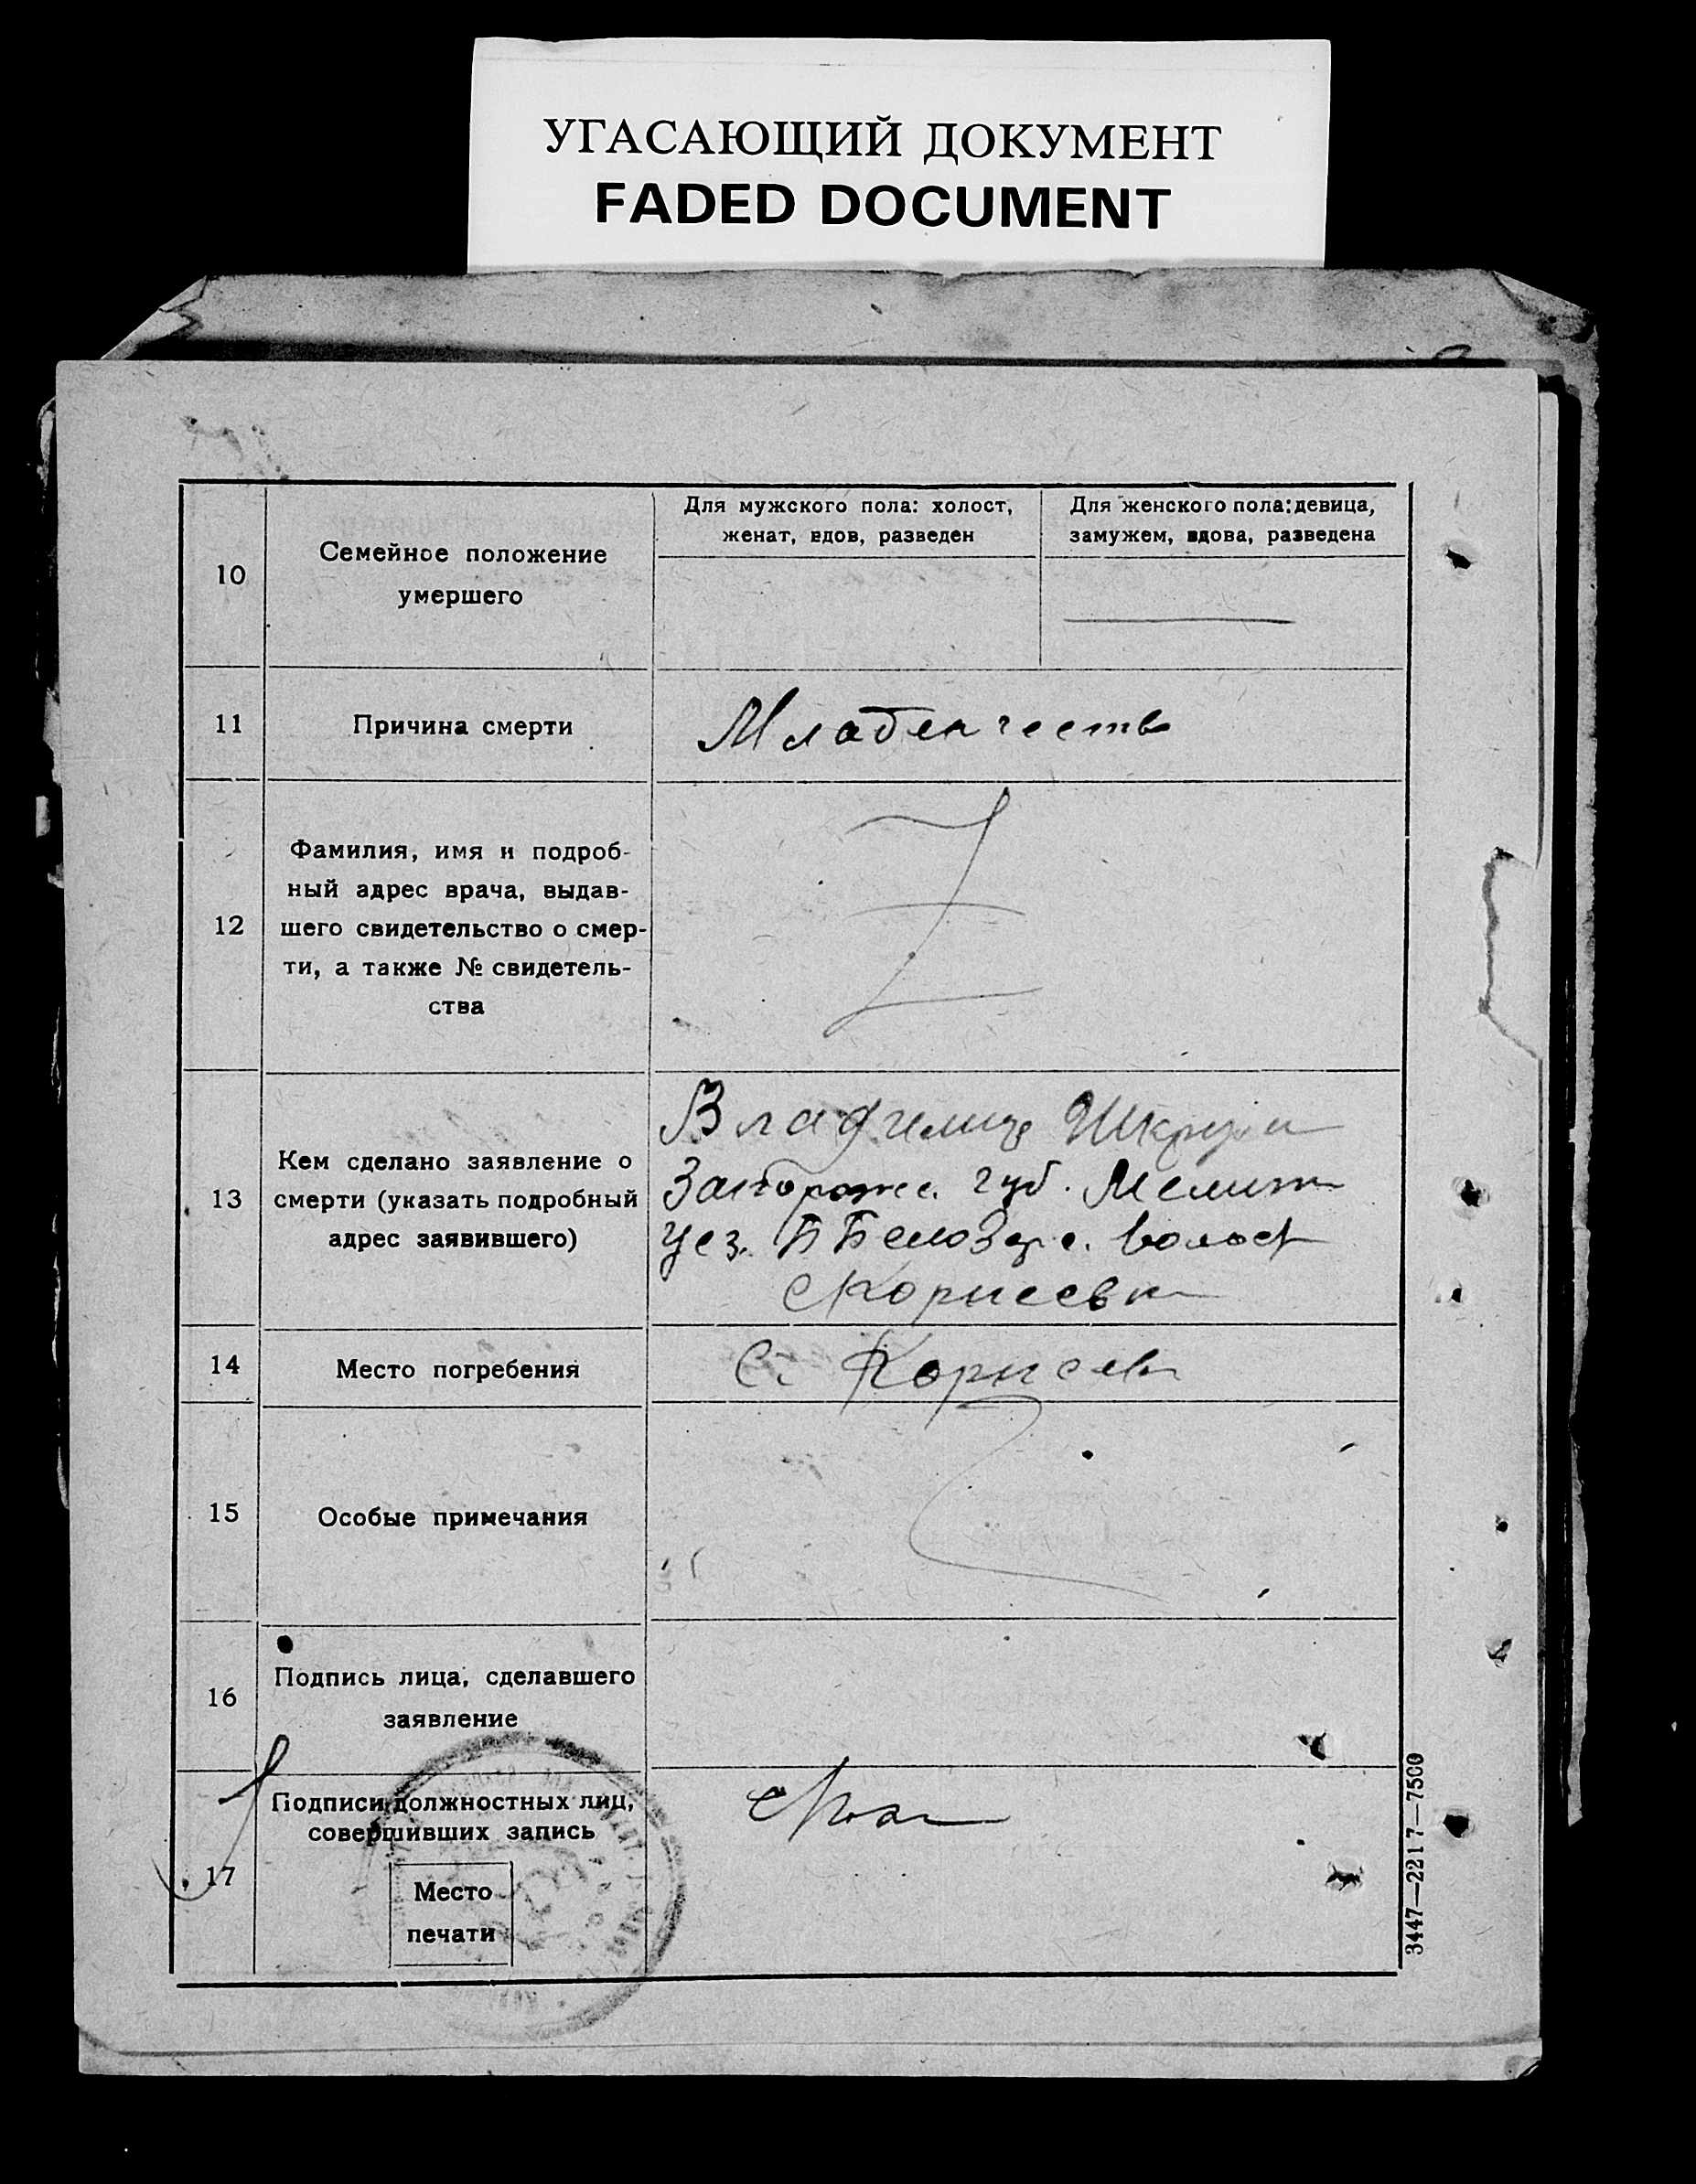 УГАСАЮЩИЙ ДОКУМЕНТ
FADED DOCUMENT
10
Семейное положение
умершего
Для мужского пола: холост,
женат, вдов, разведен
Для женского пола: девица,
замужем, вдова, разведена
11
Причина смерти
Младенчеств
12
Фамилия, имя и подроб-
ный адрес врача, выдав-
шего свидетельство о смер-
ти, а также № свидетель-
ства
13
Кем сделано заявление о
смерти (указать подробный
адрес заявившего)
Владимир
Запорожс. губ. Мелит
уез. Б Белозерс. волост
с Корнеевк
14
Место погребения
С. Корнеев
15
Особые примечания
16
Подпись лица, сделавшего
заявление
17
Подписи должностных лиц,
совершивших запись
Место
печати
3447—2217—7500